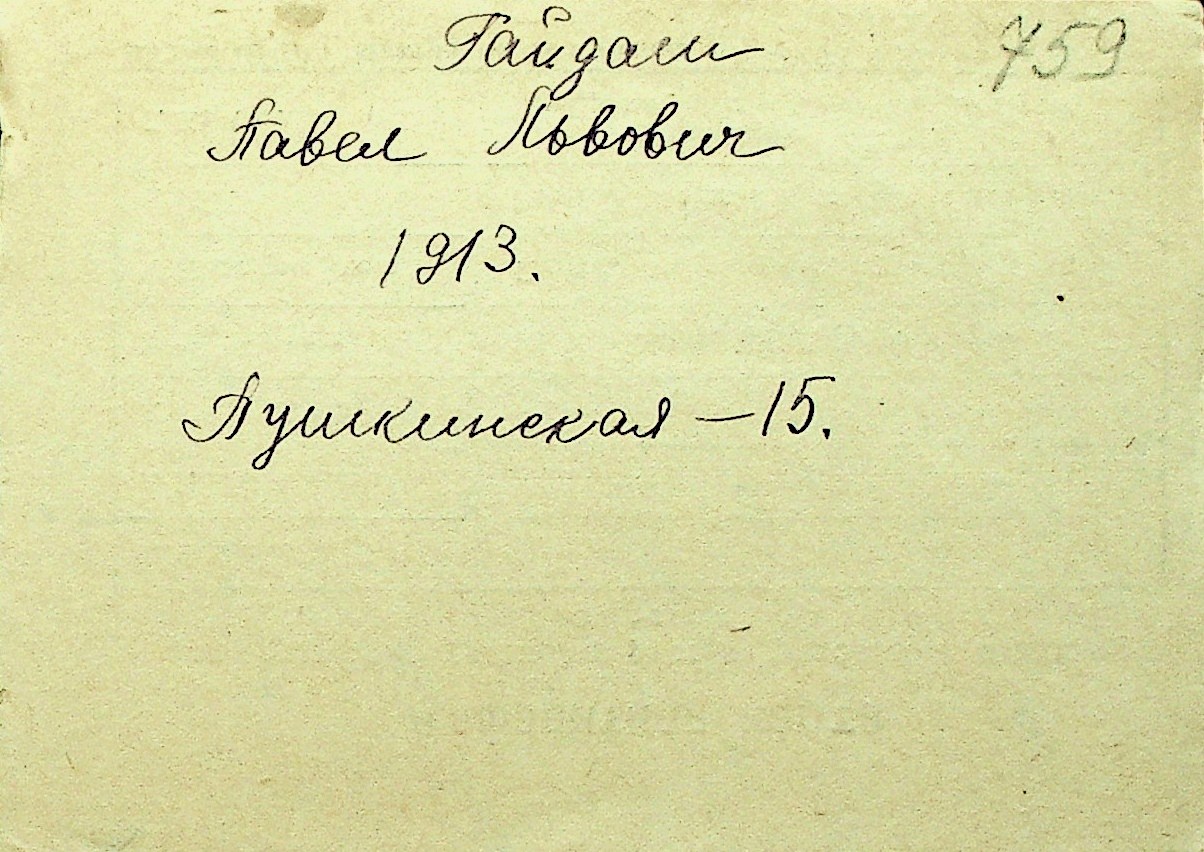 Гайдаш 759
Павел Львович
1913.
Пушкинская – 15.